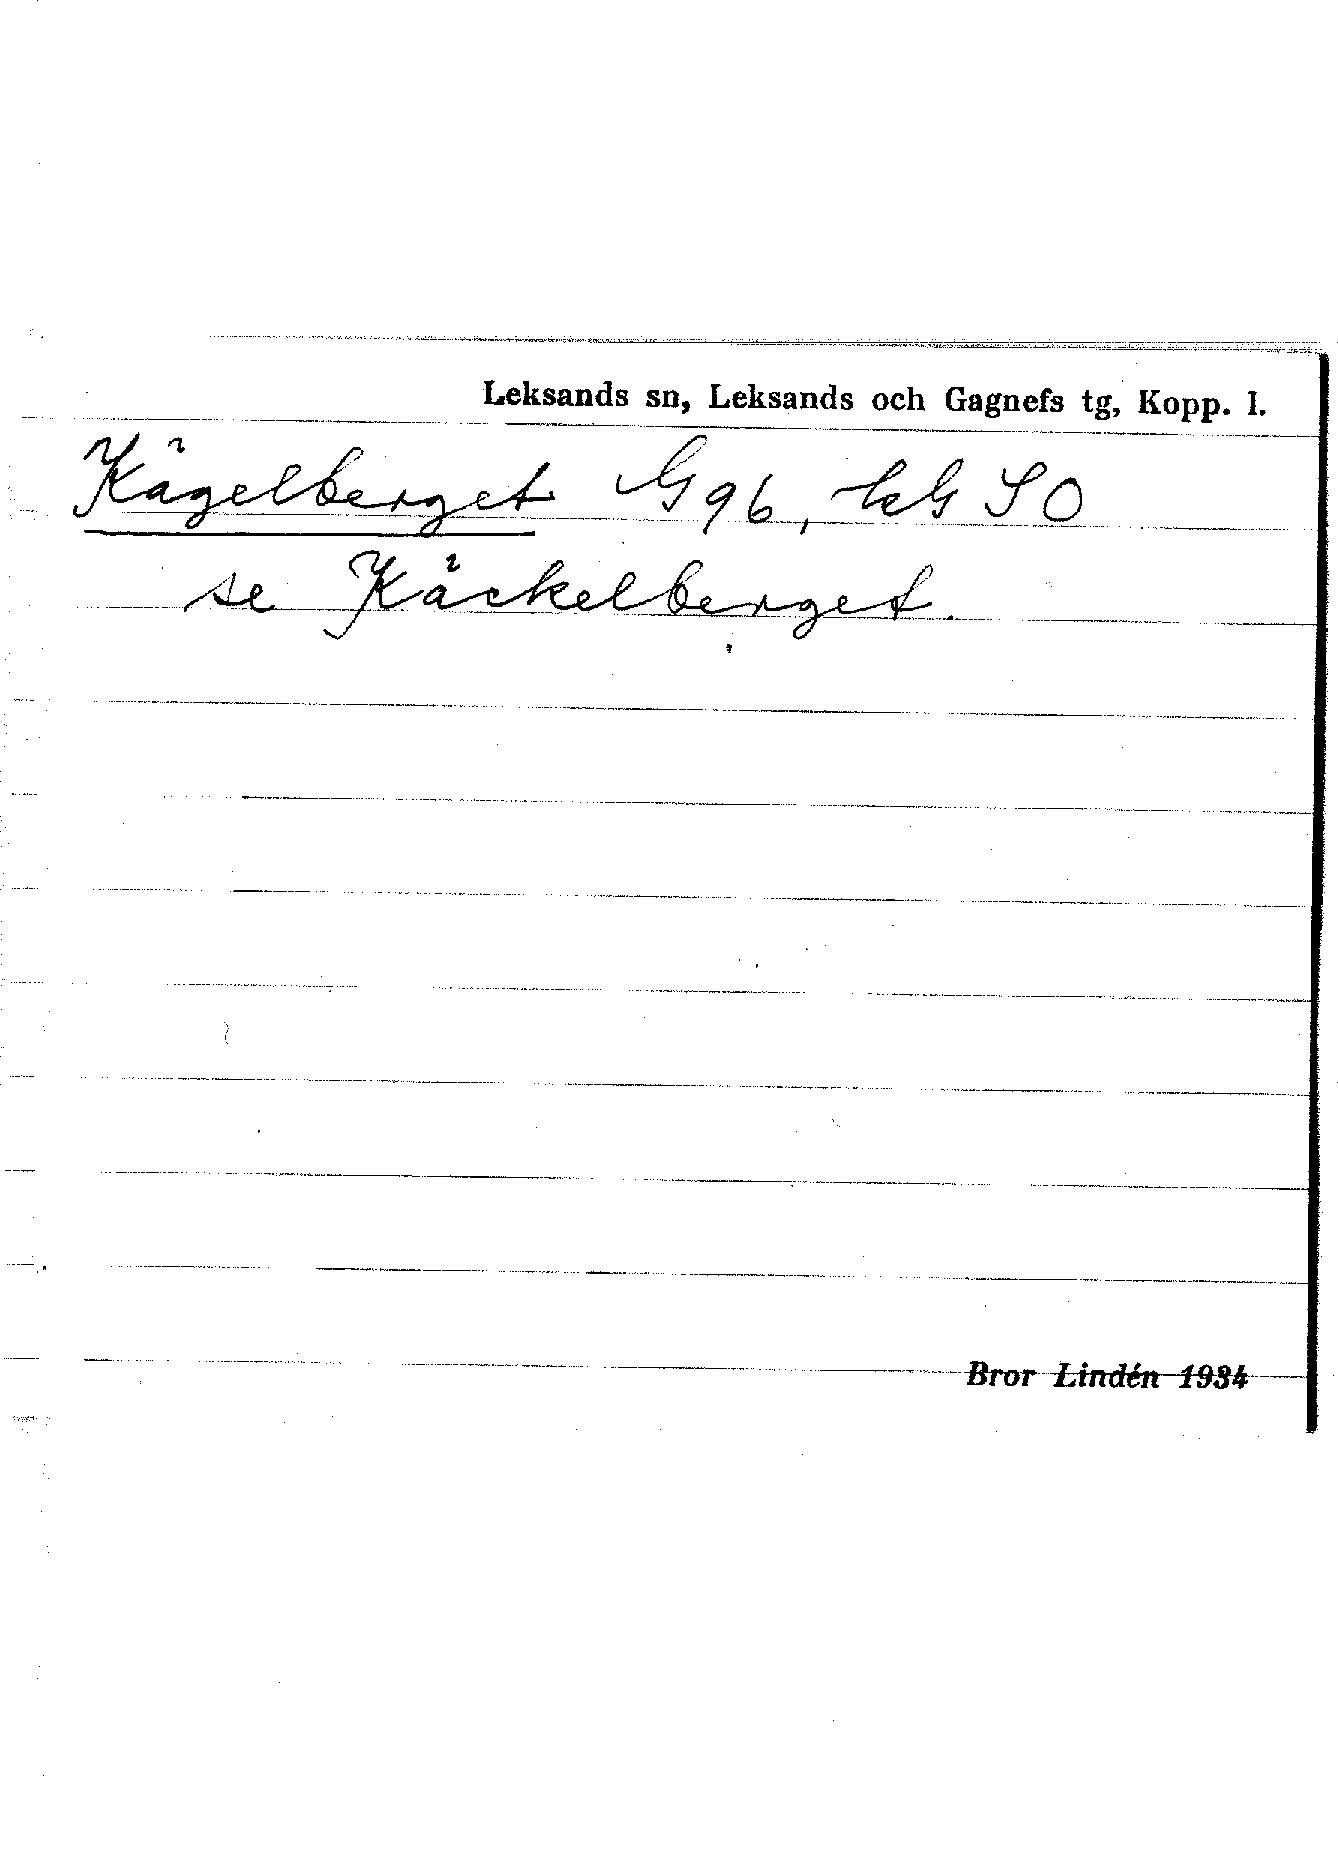 Leksands sn, Leksands och Gagnefs tg, Kopp. l.
Kägelberget G 96, SO
se Käckelberget.
Bror Lindén 1934